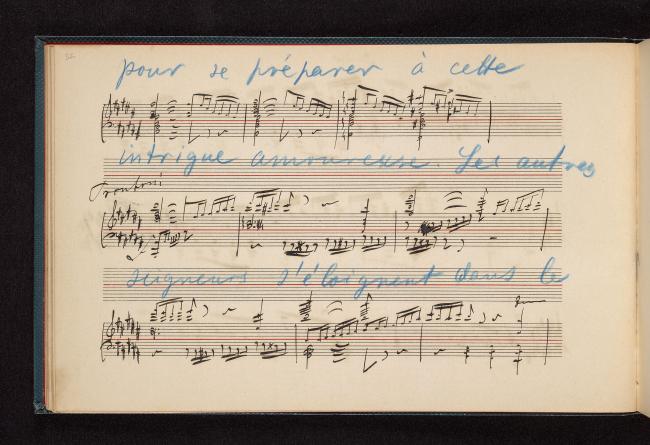 pour se préparer à cette
intrigue amoureuse. Les autres
seigneurs s'éloignent dans le